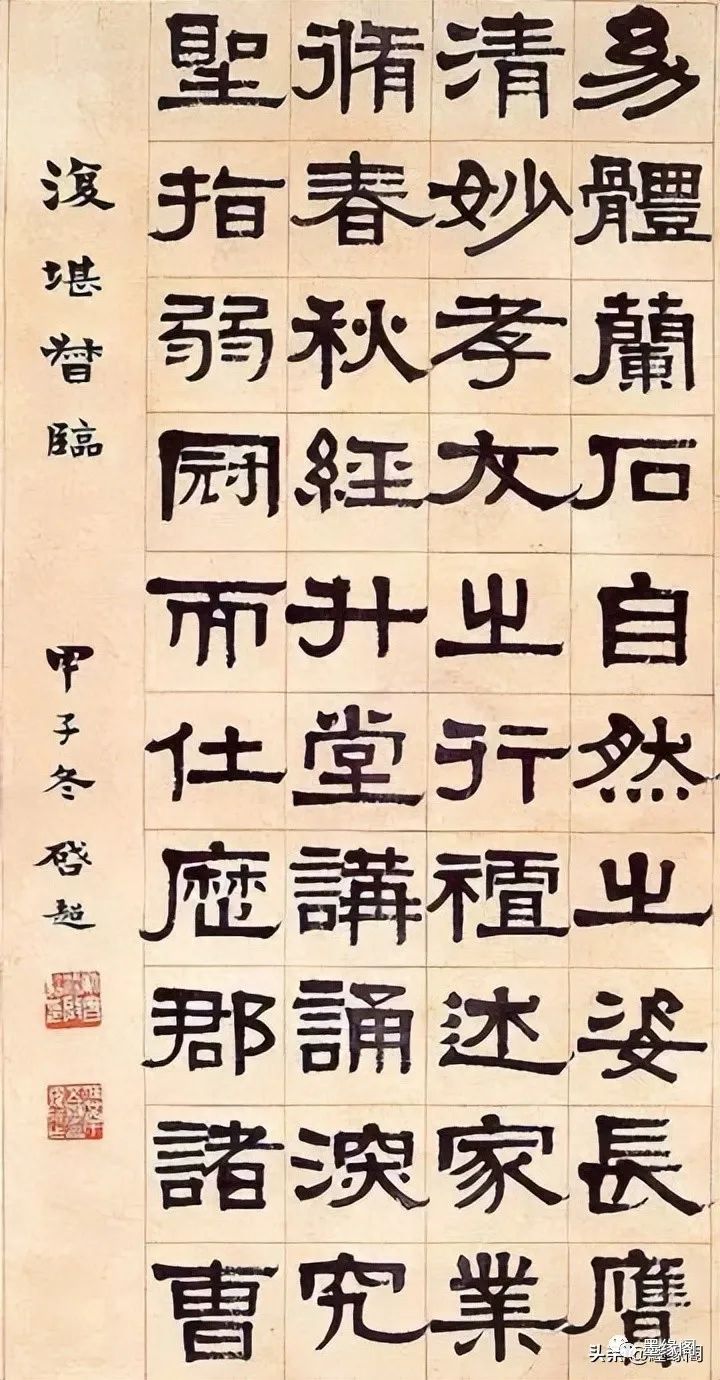 幼體蘭石自然之姿長膺
清妙孝友之行述家業
脩春秋經升堂講誦深究
聖指弱冠而仕歷郡諸曹
復堪督臨 甲子冬 啓超
头条@墨缘阁
墨缘阁